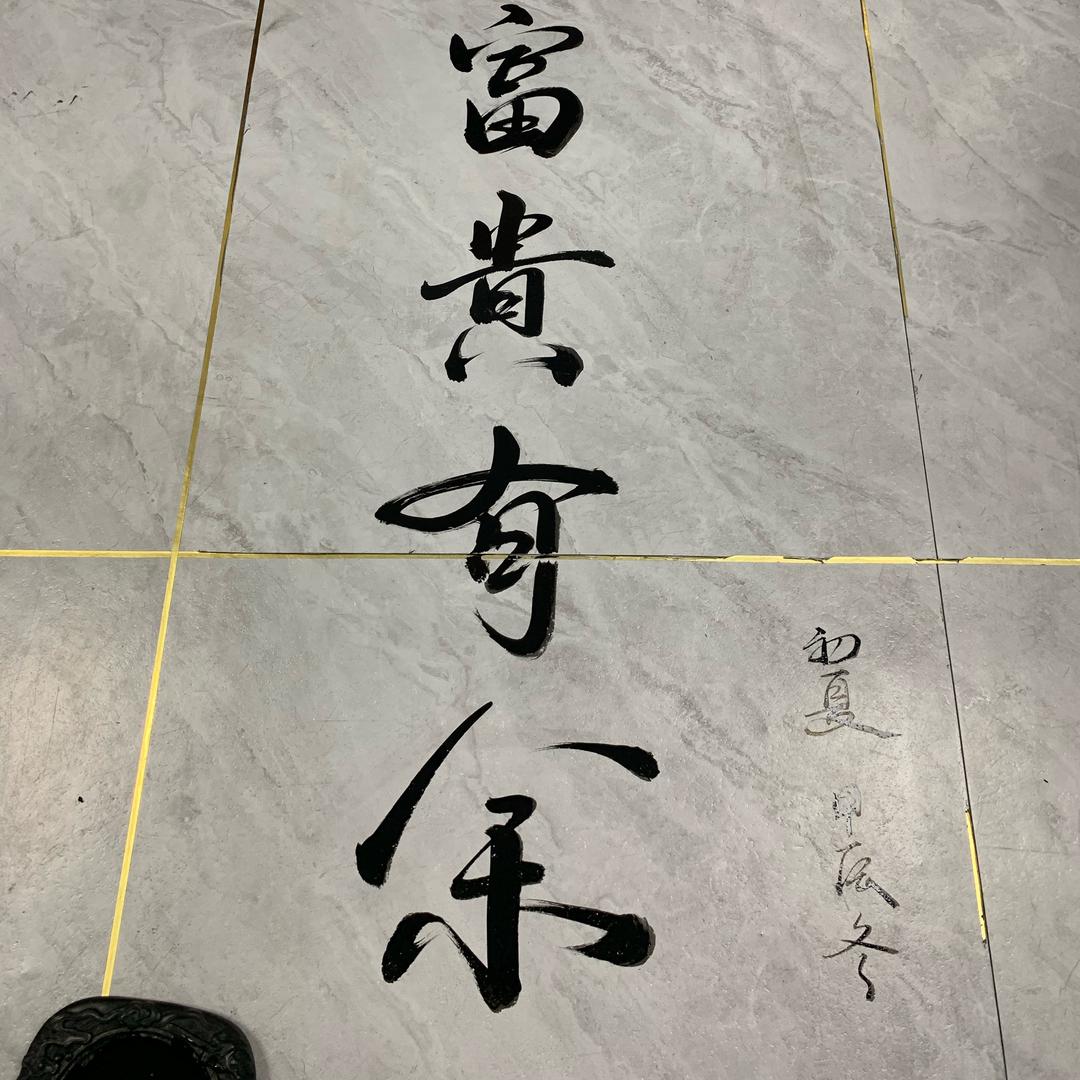 富貴有余
初夏 甲辰冬